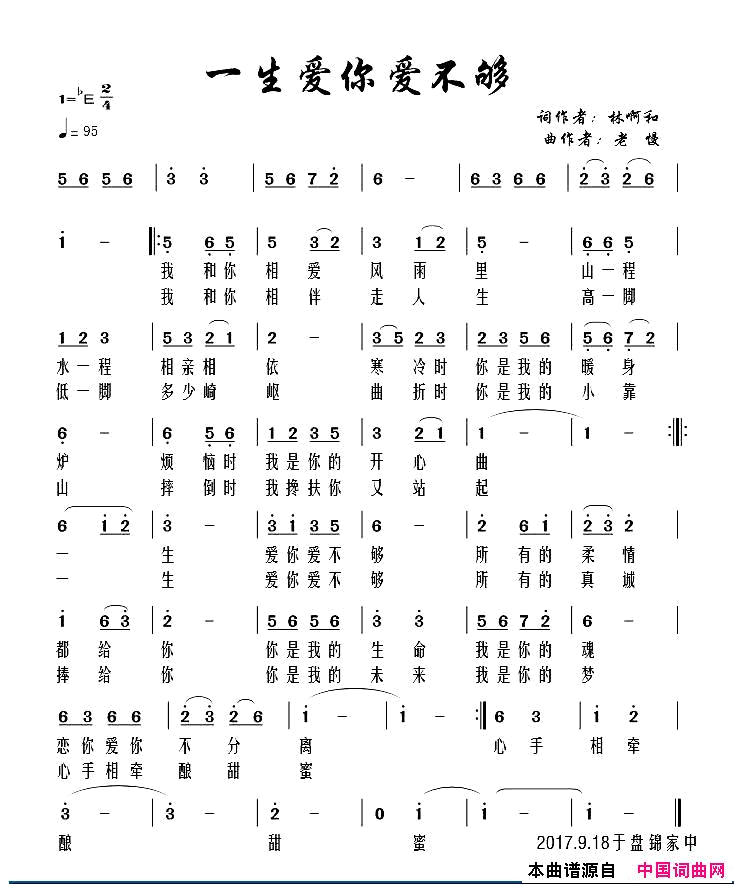 一生爱你爱不够
1=♭E 2/4
♩= 95
词作者：林啊和
曲作者：老 慢
5 6 5 6 | 3 3 | 5 6 7 2 | 6 - | 6 3 6 6 | 2 3 2 6 |
1 - ‖: 5 6 5 | 5 3 2 | 3 1 2 | 5 - | 6 6 5 |
我 和你 相 爱 风 雨 里 山一程
我 和你 相 伴 走 人 生 高一脚
1 2 3 | 5 3 2 1 | 2 - | 3 5 2 3 | 2 3 5 6 | 5 6 7 2 |
水一程 相亲相 依 寒冷时 你是我的 暖身
低一脚 多少崎 岖 曲折时 你是我的 小靠
6 - | 3 5 6 | 1 2 3 5 | 3 2 1 | 1 - | 1 - :‖
炉 烦恼时 我是你的 开心 曲
山 摔倒时 我搀扶你 又站 起
6 1 2 | 3 - | 3 1 3 5 | 6 - | 2 6 1 | 2 2 3 |
一 生 爱你爱不 够 所有的 柔情
一 生 爱你爱不 够 所有的 真诚
1 6 3 | 2 - | 5 6 5 6 | 3 3 | 5 6 7 2 | 6 - |
都给 你 你是我的 生命 我是你的 魂
捧给 你 你是我的 未来 我是你的 梦
6 3 6 6 | 2 3 2 6 | 1 - | 1 - :‖ 6 3 | 1 2 |
恋你爱你 不分 离 心手 相牵
心手相牵 酿甜 蜜
3 - | 3 - | 2 - | 0 1 | 1 - | 1 - |
酿 甜 蜜
2017.9.18于盘锦家中
本曲谱源自 中国词曲网